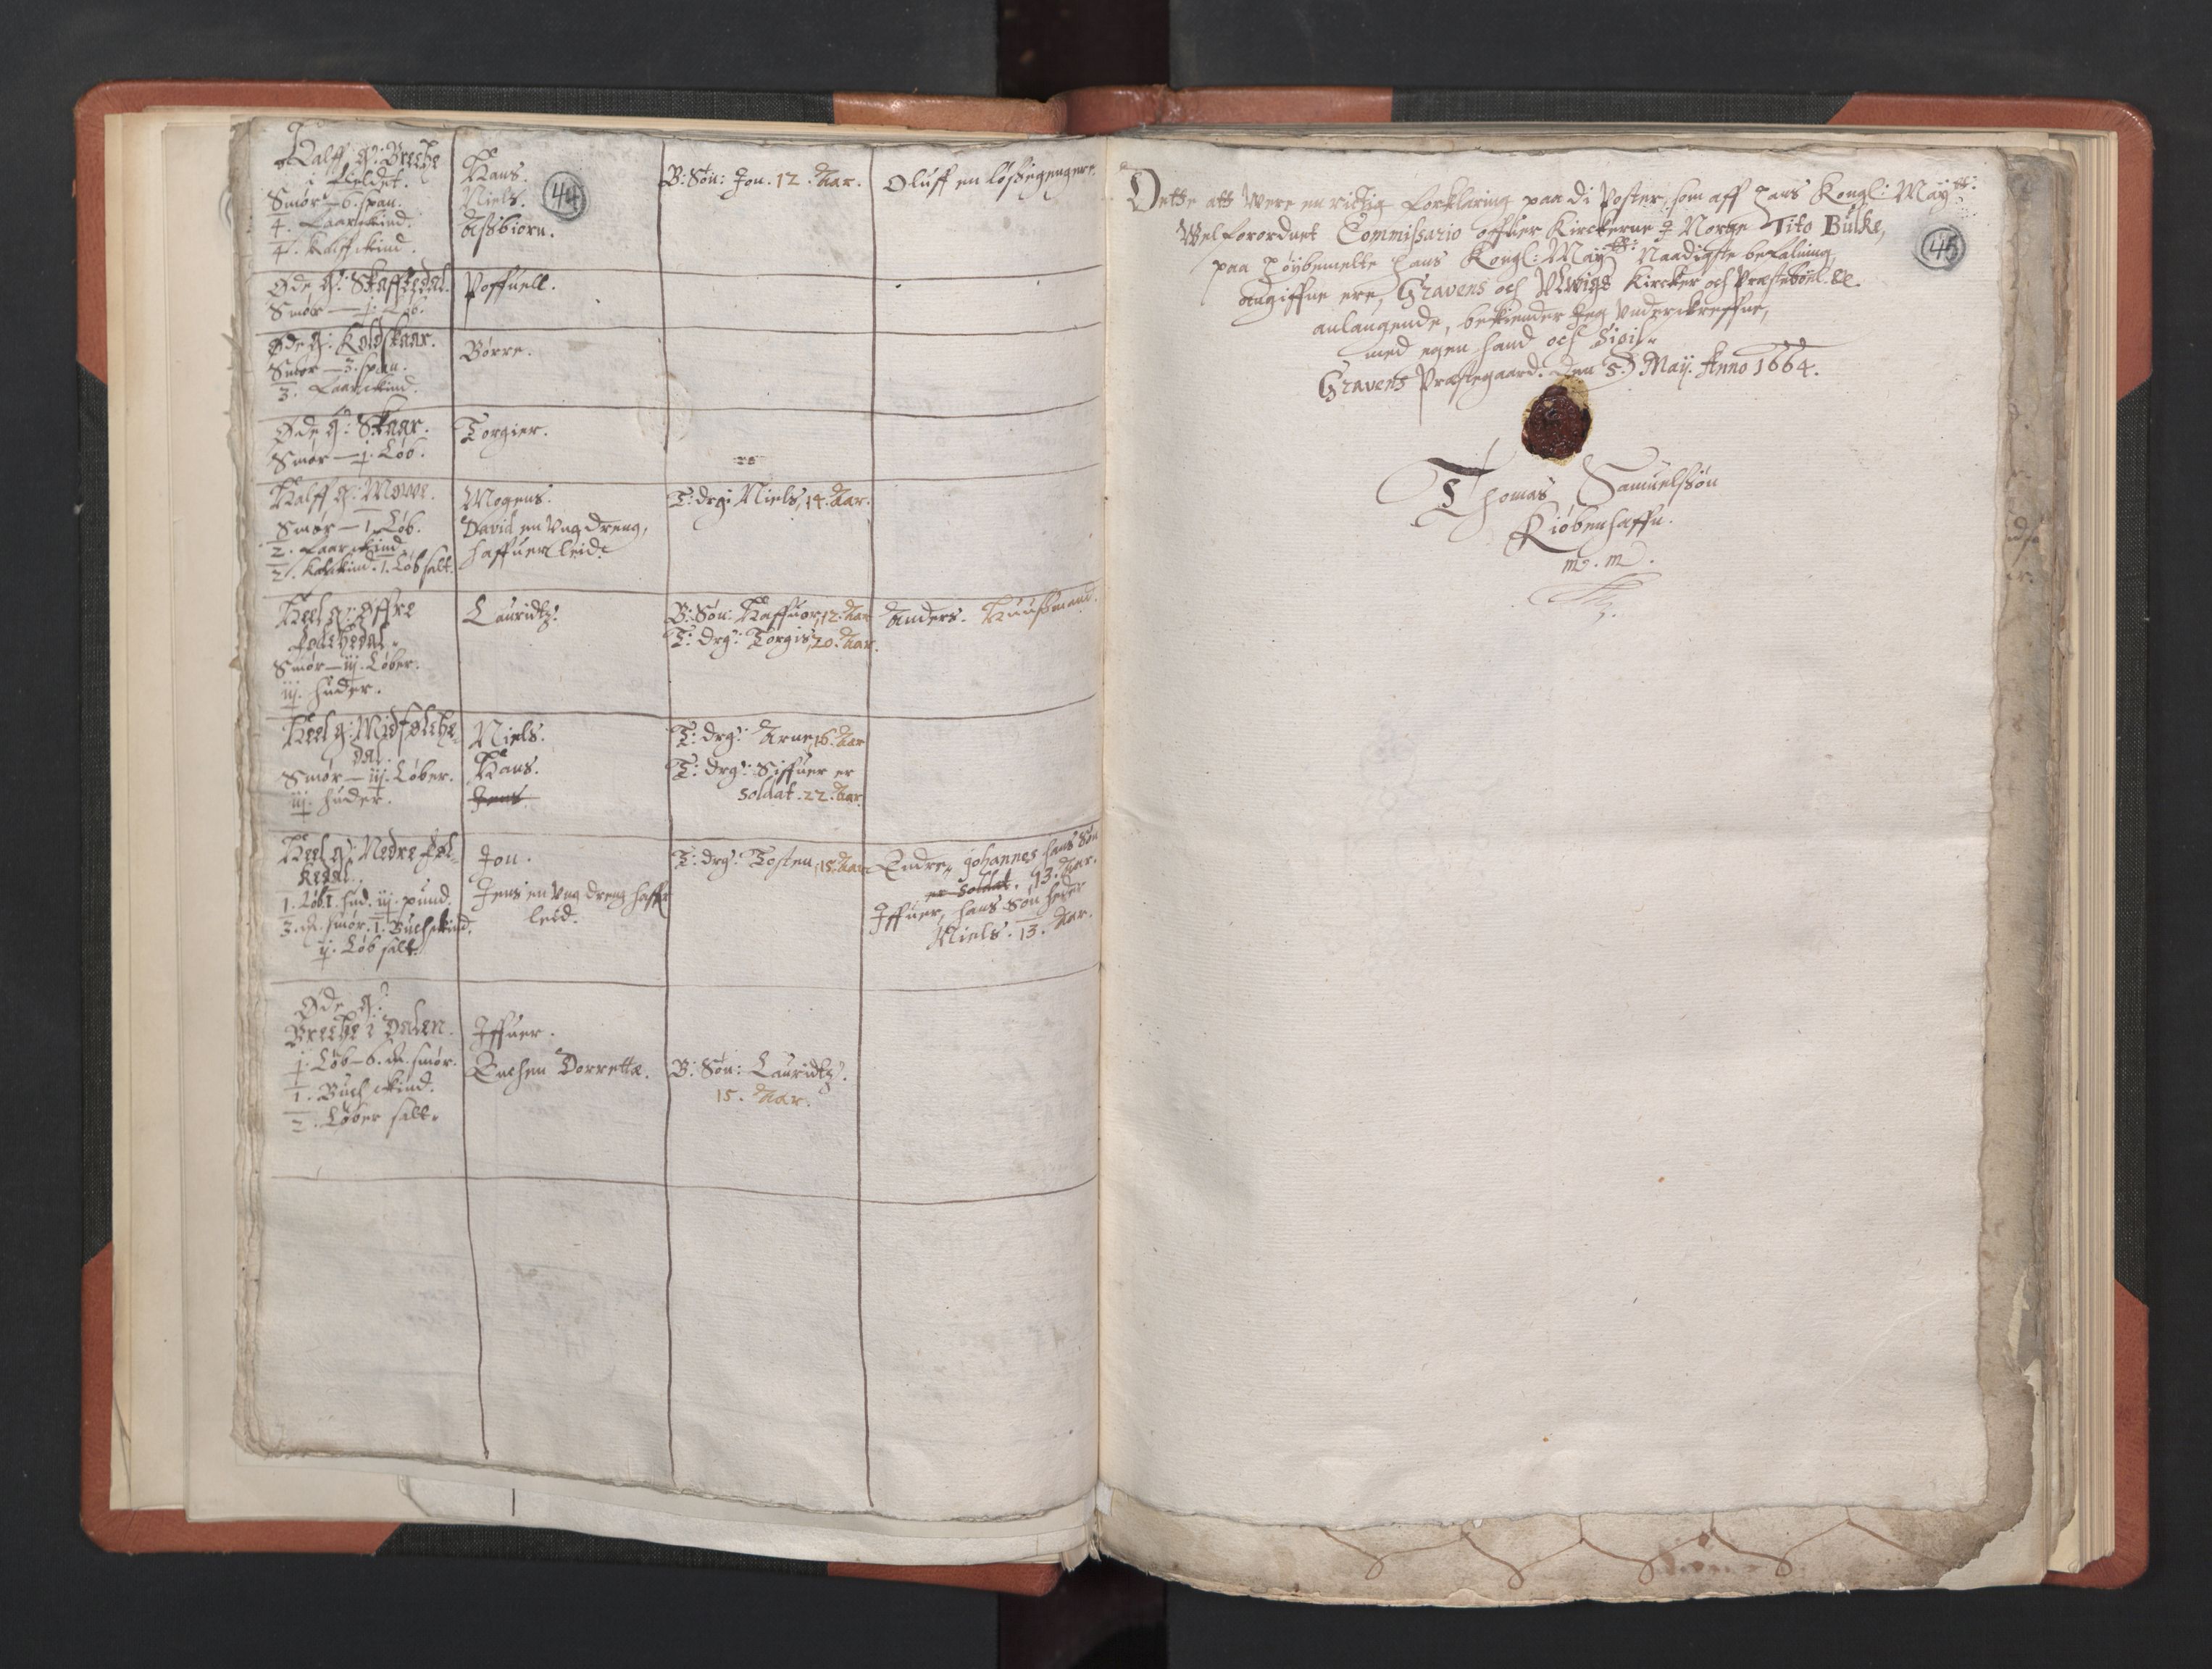 Halff g: Breche
i fieldet.
Smør – 6. span.
4. faarskind.
4. Kalffskind.
Hans.
Niels.
Aßbiorn.
44
B: Søn: Jon. 12. Aar.
Oluff en løßgengere.
Øde g: Skaffledal.
Smør – j. Løb.
Poffuell.
Øde g: Koldskaar.
Smør – 3. span.
3. faarskind.
Børre.
Øde g: Skaar.
Smør – j. Løb.
Torgier.
Halff g: Mowe.
Smør – 1. Løb.
2. faarskind.
2. Kalfskind. 1. Løb salt.
Mogens.
David en Ung dreng,
haffuer leid.
T: drg: Niels, 14. Aar.
Heel g: Øffre
Folchedal.
Smør – iij. Løber.
iij. huder.
Lauridtz.
B: Søn: Haffuor, 12. Aar
T: drg: Torgis, 20. Aar.
Anders. Huußmand.
Heel g: Midfolche-
dal.
Smør – iij. Løber.
iij. huder.
Niels.
Hans.
Jens
T: drg: Arne, 16. Aar
T: drg: Siffuer er
soldat. 22. Aar.
Heel g: Nedre Fol-
kedal.
1. Løb. 1. hud. iij. pund.
3. m. smør. 1. Buchskind.
ij. Løb salt.
Jon.
Jens en Ung dreng haffr
leid.
T: drg: Tosten, 15. Aar
Endre, Johannes hans Søn
er soldat. 13. Aar.
Iffuer, hans søn heder
Niels. 13. Aar.
Øde g:
Breche i Dalen.
j. Løb – 6. m. smør.
1. Buchskind.
2. Løber salt.
Iffuer.
Enchen Dorrettæ.
B: Søn: Lauridtz.
15. Aar.
Dette att Were en richtig forklaring paa di Poster, som aff Hans Kongl: Maytt:
Welforordnet Commissario offuer Kirckerne i Norge Tito Bülke,
paa høybemelte Hans Kongl: Maytts: Naadigste befalning,
angiffne ere, Gravens och Ulwigs Kircker och Præstebøll &c.
anlangende, bekiender Jeg Underskreffne,
med egen Hand och Sigil.
Gravens Præstegaard. Den 5. May. Anno 1664.
45
Thomas Samuelsøn
Kiøbenhaffn.
m. m.